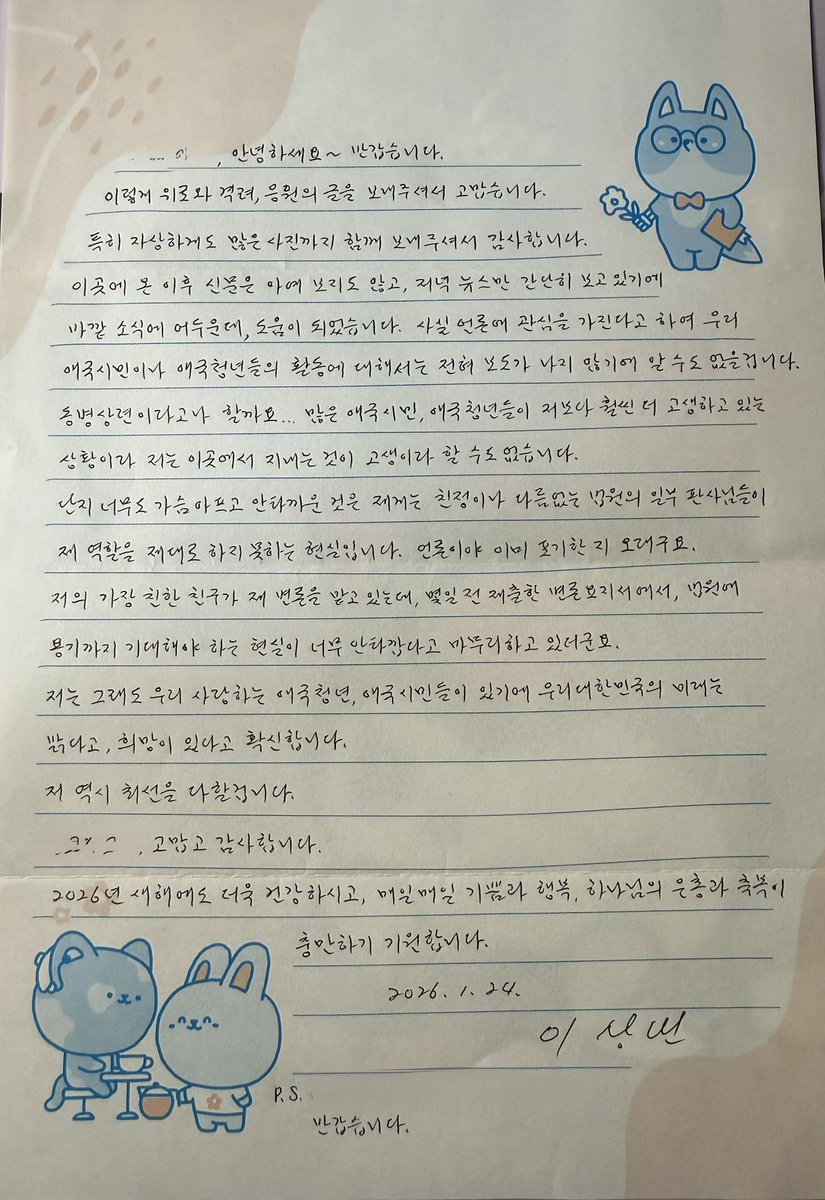 , 안녕하세요~ 반갑습니다.
이렇게 위로와 격려, 응원의 글을 보내주셔서 고맙습니다.
특히 자상하게도 많은 사진까지 함께 보내주셔서 감사합니다.
이곳에 온 이후 신문은 아예 보지도 않고, 저녁 뉴스만 간단히 보고있기에
바깥 소식에 어두운데, 도움이 되었습니다. 사실 언론에 관심을 가진다고 하여 우리
애국시민이나 애국청년들의 활동에 대해서는 전혀 보도가 나지 않기에 알 수도 없을겁니다.
동병상련이라고나 할까요... 많은 애국시민, 애국청년들이 저보다 훨씬 더 고생하고 있는
상황이라 저는 이곳에서 지내는 것이 고생이라 할 수도 없습니다.
단지 너무도 가슴아프고 안타까운 것은 제게는 친정이나 다름없는 법원의 일부 판사님들이
제 역할을 제대로 하지 못하는 현실입니다. 언론이야 이미 포기한 지 오래구요.
저의 가장 친한 친구가 제 변론을 맡고 있는데, 몇일 전 제출한 변론요지서에서, 법원에
용기까지 기대해야 하는 현실이 너무 안타깝다고 마무리하고 있더군요.
저는 그래도 우리 사랑하는 애국청년, 애국시민들이 있기에 우리대한민국의 미래는
밝다고, 희망이 있다고 확신합니다.
저 역시 최선을 다할겁니다.
, 고맙고 감사합니다.
2026년 새해에도 더욱 건강하시고, 매일매일 기쁨과 행복, 하나님의 은총과 축복이
충만하기 기원합니다.
2026. 1. 24.
이상민
P.S.
반갑습니다.